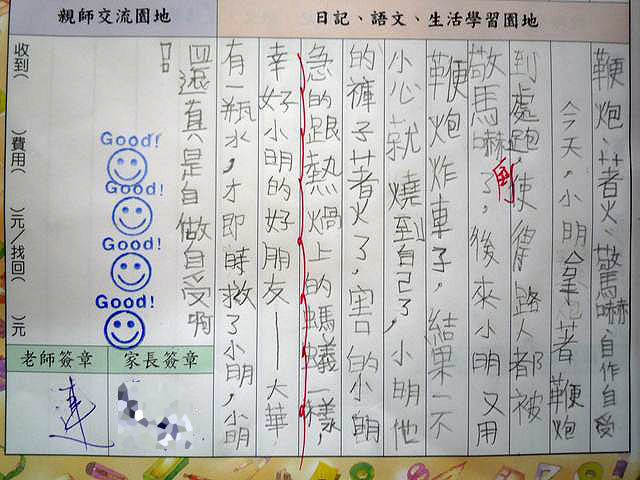 日記、語文、生活學習園地
鞭炮、著火、驚嚇、自作自受
今天,小明拿著鞭炮
到處跑,使得路人都被
驚嚇到了,後來小明又用
鞭炮炸車子,結果一不
小心就燒到自己了,小明他
的褲子著火了,害的小明
急的跟熱鍋上的螞蟻一樣,
幸好小明的好朋友—大華
有一瓶水,才即時救了小明,小明
還真是自做自受啊
!
親師交流園地
收到( )費用( )元/找回( )元
Good!
Good!
Good!
Good!
老師簽章
家長簽章